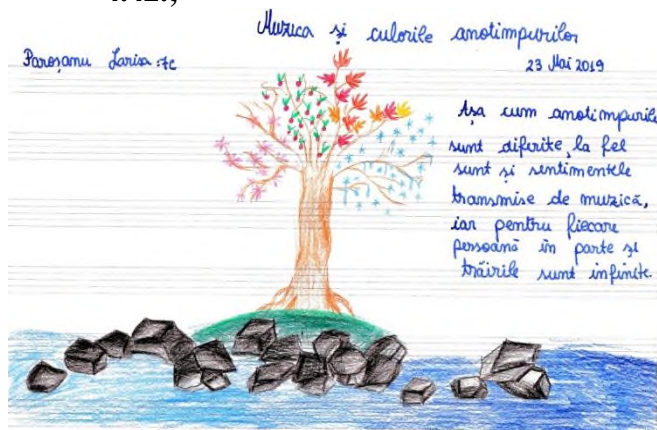 Muzica și culorile anotimpurilor
Paroșanu Larisa 7c
23 Mai 2019
Așa cum anotimpurile
sunt diferite, la fel
sunt și sentimentele
transmise de muzică,
iar pentru fiecare
persoană în parte și
trăirile sunt infinite.